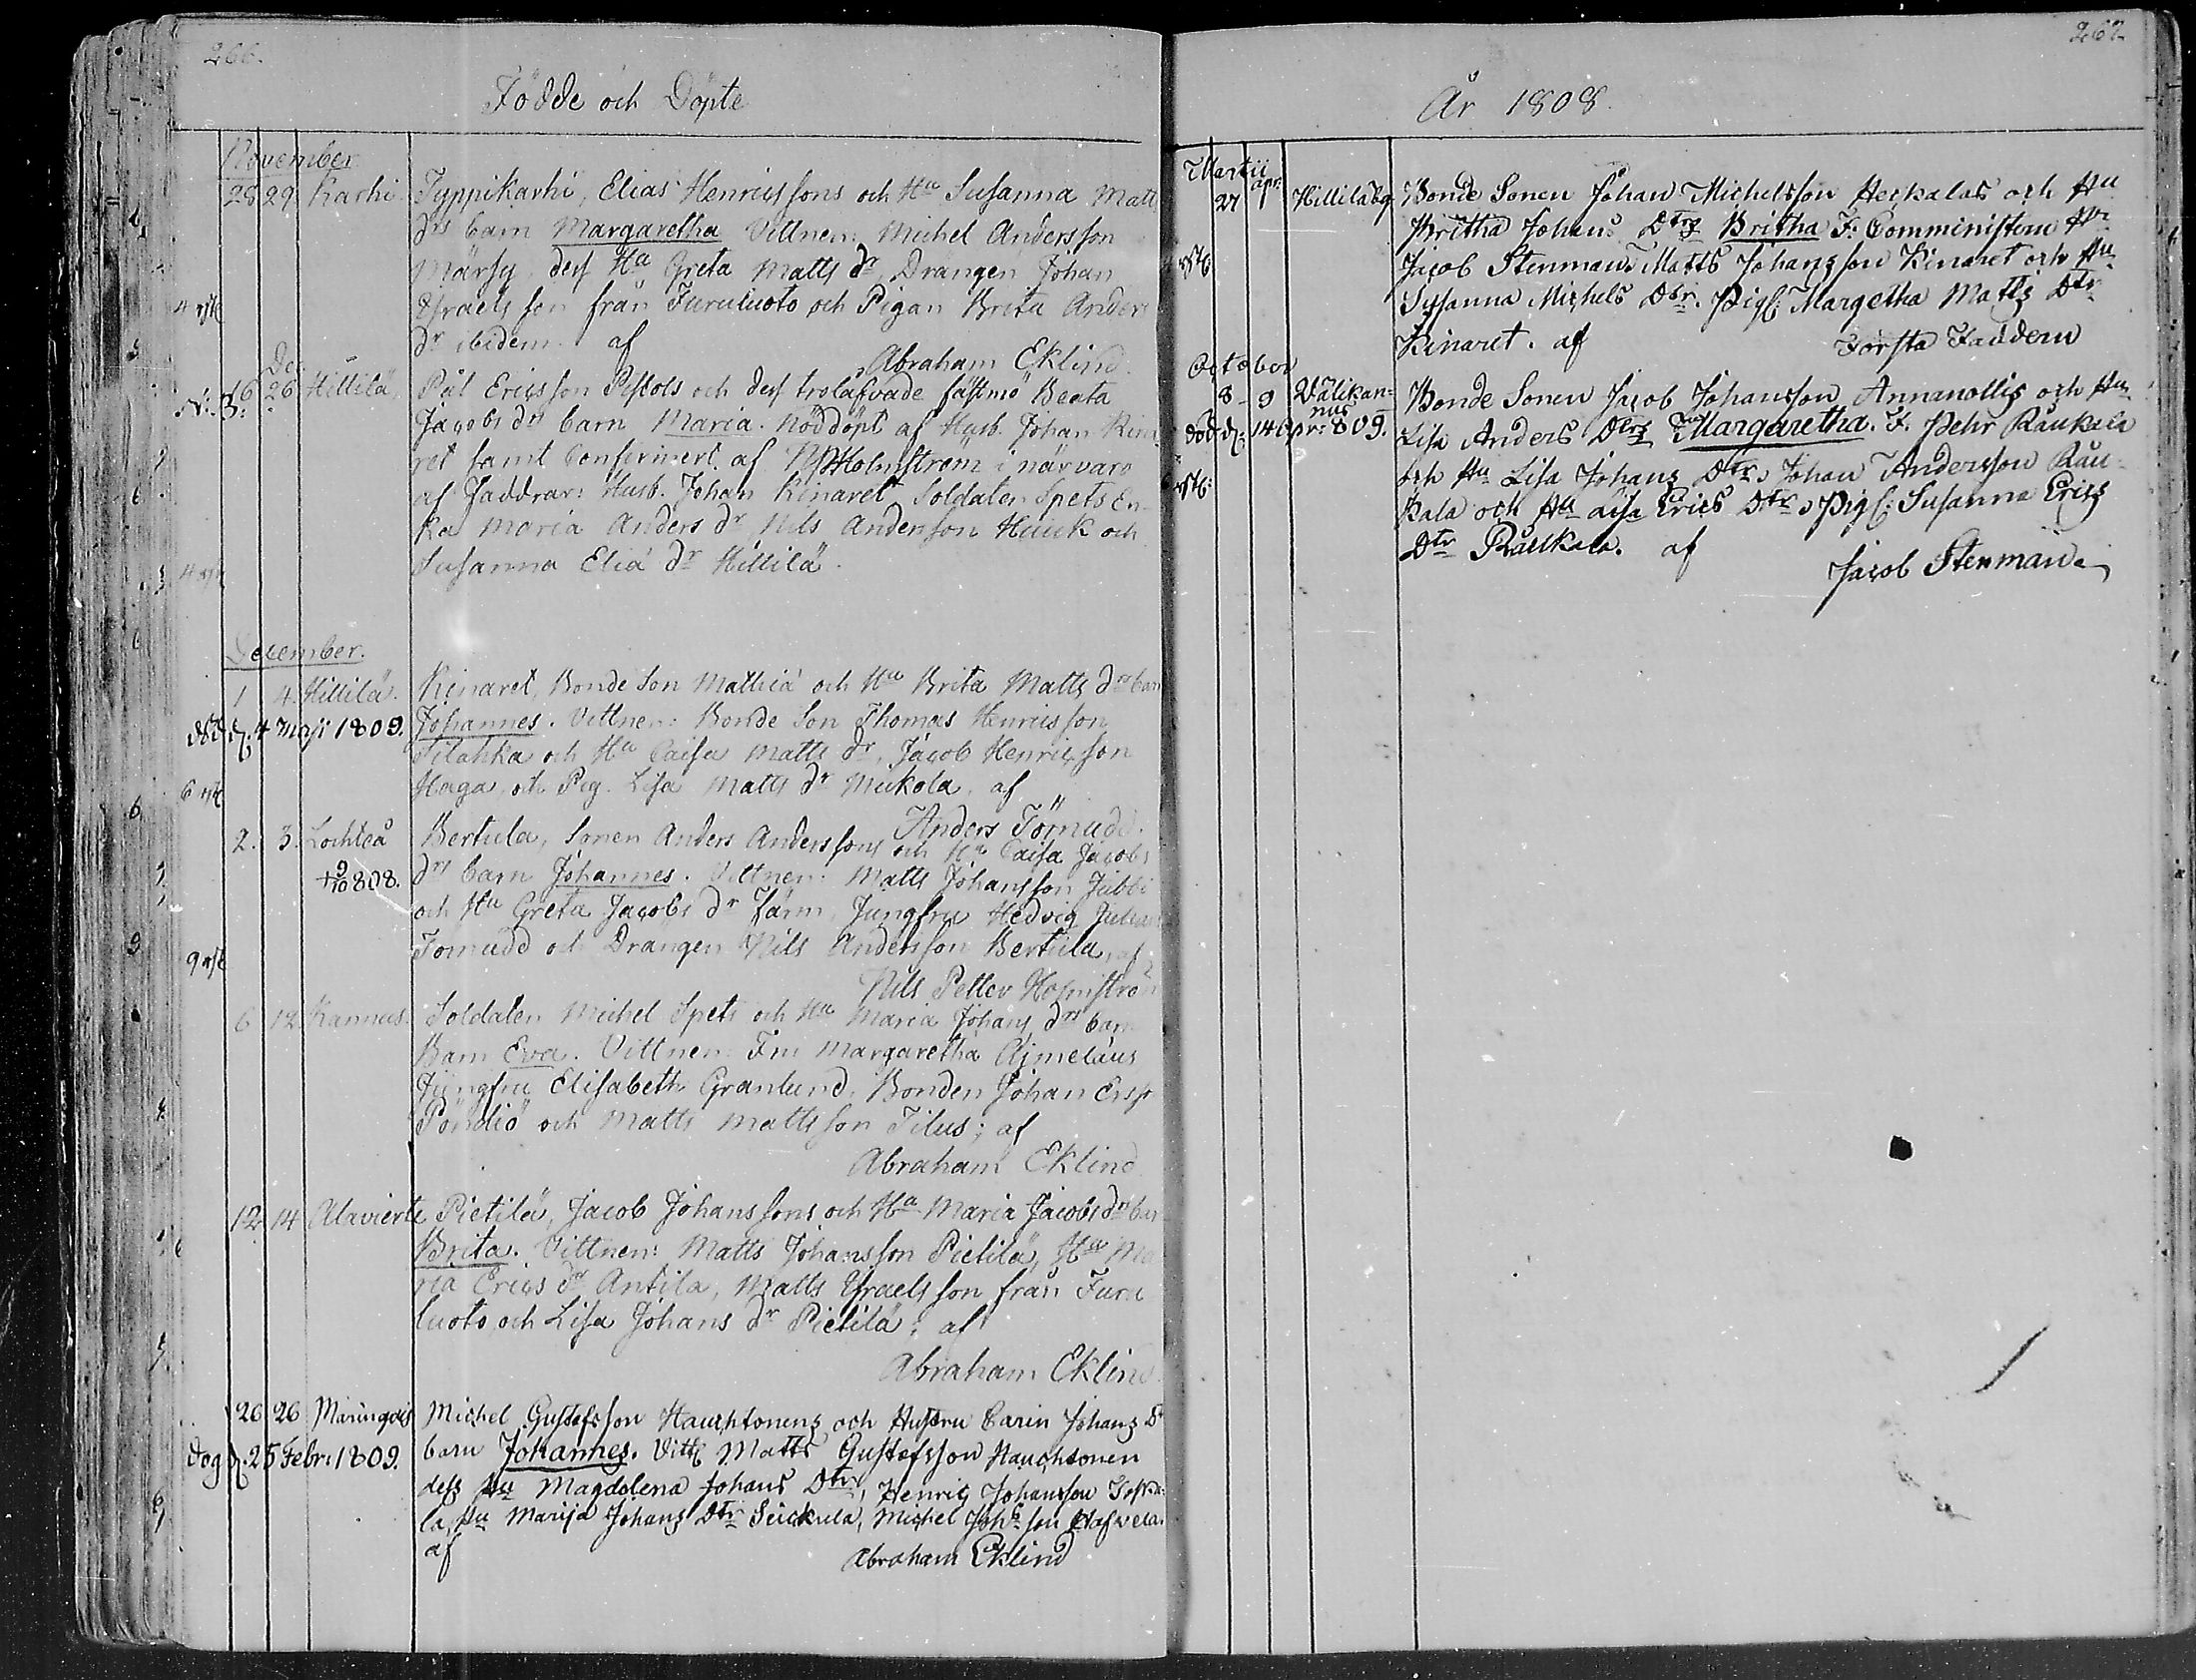 266.
Födde och Döpte
November
28 29 Karhi. Typpikarhi, Elias Henricssons och Hu Susanna Matts
drs barn Margaretha. Vittnen: Michel Andersson
Märsy, dess Hu Greta Matts dr, Drängen Johan
Israelsson från Furuluoto och Pigan Brita Anders
4 rst
dr ibidem. af
Abraham Eklind.
Dec.
16 26 Hillilä, Pål Ericsson Pistols och dess trolåfvade fästmö Beata
Jacobs drs barn Maria. Nöddöpt af Husb. Johan Kina
ret samt Confirmert af NP Holmström i närvaro
af Faddrar: Husb. Johan Kinaret Soldaten Spets En-
ka Maria Anders dr Nils Andersson Hauk och
Susanna Eliä dr Hillilä.
December.
1 4 Hillilä. Kinaret, Bonde Son Mathiä och Hu Brita Matts drs barn
död d. 4 Maji 1809. Johannes. Vittnen: Bonde Son Thomas Henricsson
Tilahka och Hu Caisa Matts dr, Jacob Henricsson
Haga och Pig. Lisa Matts dr Mickola, af
6 rst
Anders Törnudd.
2. 3. Lochteå Bertula, Sonen Anders Anderssons och Hu Caisa Jacobs
drs barn Johannes. Vittnen: Matts Johansson Jubbi
och Hu Greta Jacobs dr Färm, Jungfru Hedvig Julian
Törnudd och Drängen Nils Andersson Bertula, af
9 rst
Nils Petter Holmström
6 12 Kannus. Soldaten Michel Spets och Hu Maria Johans drs barn
Barn Eva. Vittnen: Fru Margaretha Ajmelæus
Jungfru Elisabeth Granlund, Bonden Johan Erss
Pöndiö och Matts Mattsson Tilus; af
Abraham Eklind
12 14 Alavierte Pietilä, Jacob Johanssons och Hu Maria Jacobs drs bar
Brita. Vittnen: Matts Johansson Pietilä, Hu Ma
ria Erics dr Antila, Matts Israelsson från Furu
luoto och Lisa Johans dr Pietilä; af
Abraham Eklind
26 26 Märingais Michel Gustafsson Hauchtonens och Hustru Carin Johans Dr
Dog d. 25 Febr: 1809. barn Johannes. Vittn Matts Gustafsson Hauchtonen
dess Hu Magdalena Johans Dtr, Henric Johansson
la, Hu Marija Johans Dtr Seickula, Michel Johs son
af
Abraham Eklind
262
År 1808.
Martii
27 apr: Hillilä Bonde Sonen Johan Michelsson Heckalas och Hu
Britha Johans Dtrs Britha F: Comministern Hr
Jacob Stenman, Matts Johansson Kinaret och Hu
Susanna Michels Dtr. Pigs: Margetha Matts Dtr
Kinaret. af
Första Faddern
October
8 9 Välikan-
nus
Bonde Sonen Jacob Johansson Annanollis och Hu
död d: 14 apr: 809. Lisa Anders Dtrs Margaretha. F. Pehr Raukala
och Hu Lisa Johans Dtr, Johan Andersson Rau-
kala och Hu Lisa Erics Dtr, Pigs: Susanna Erics
Dtr Raukala. af
Jacob Stenman